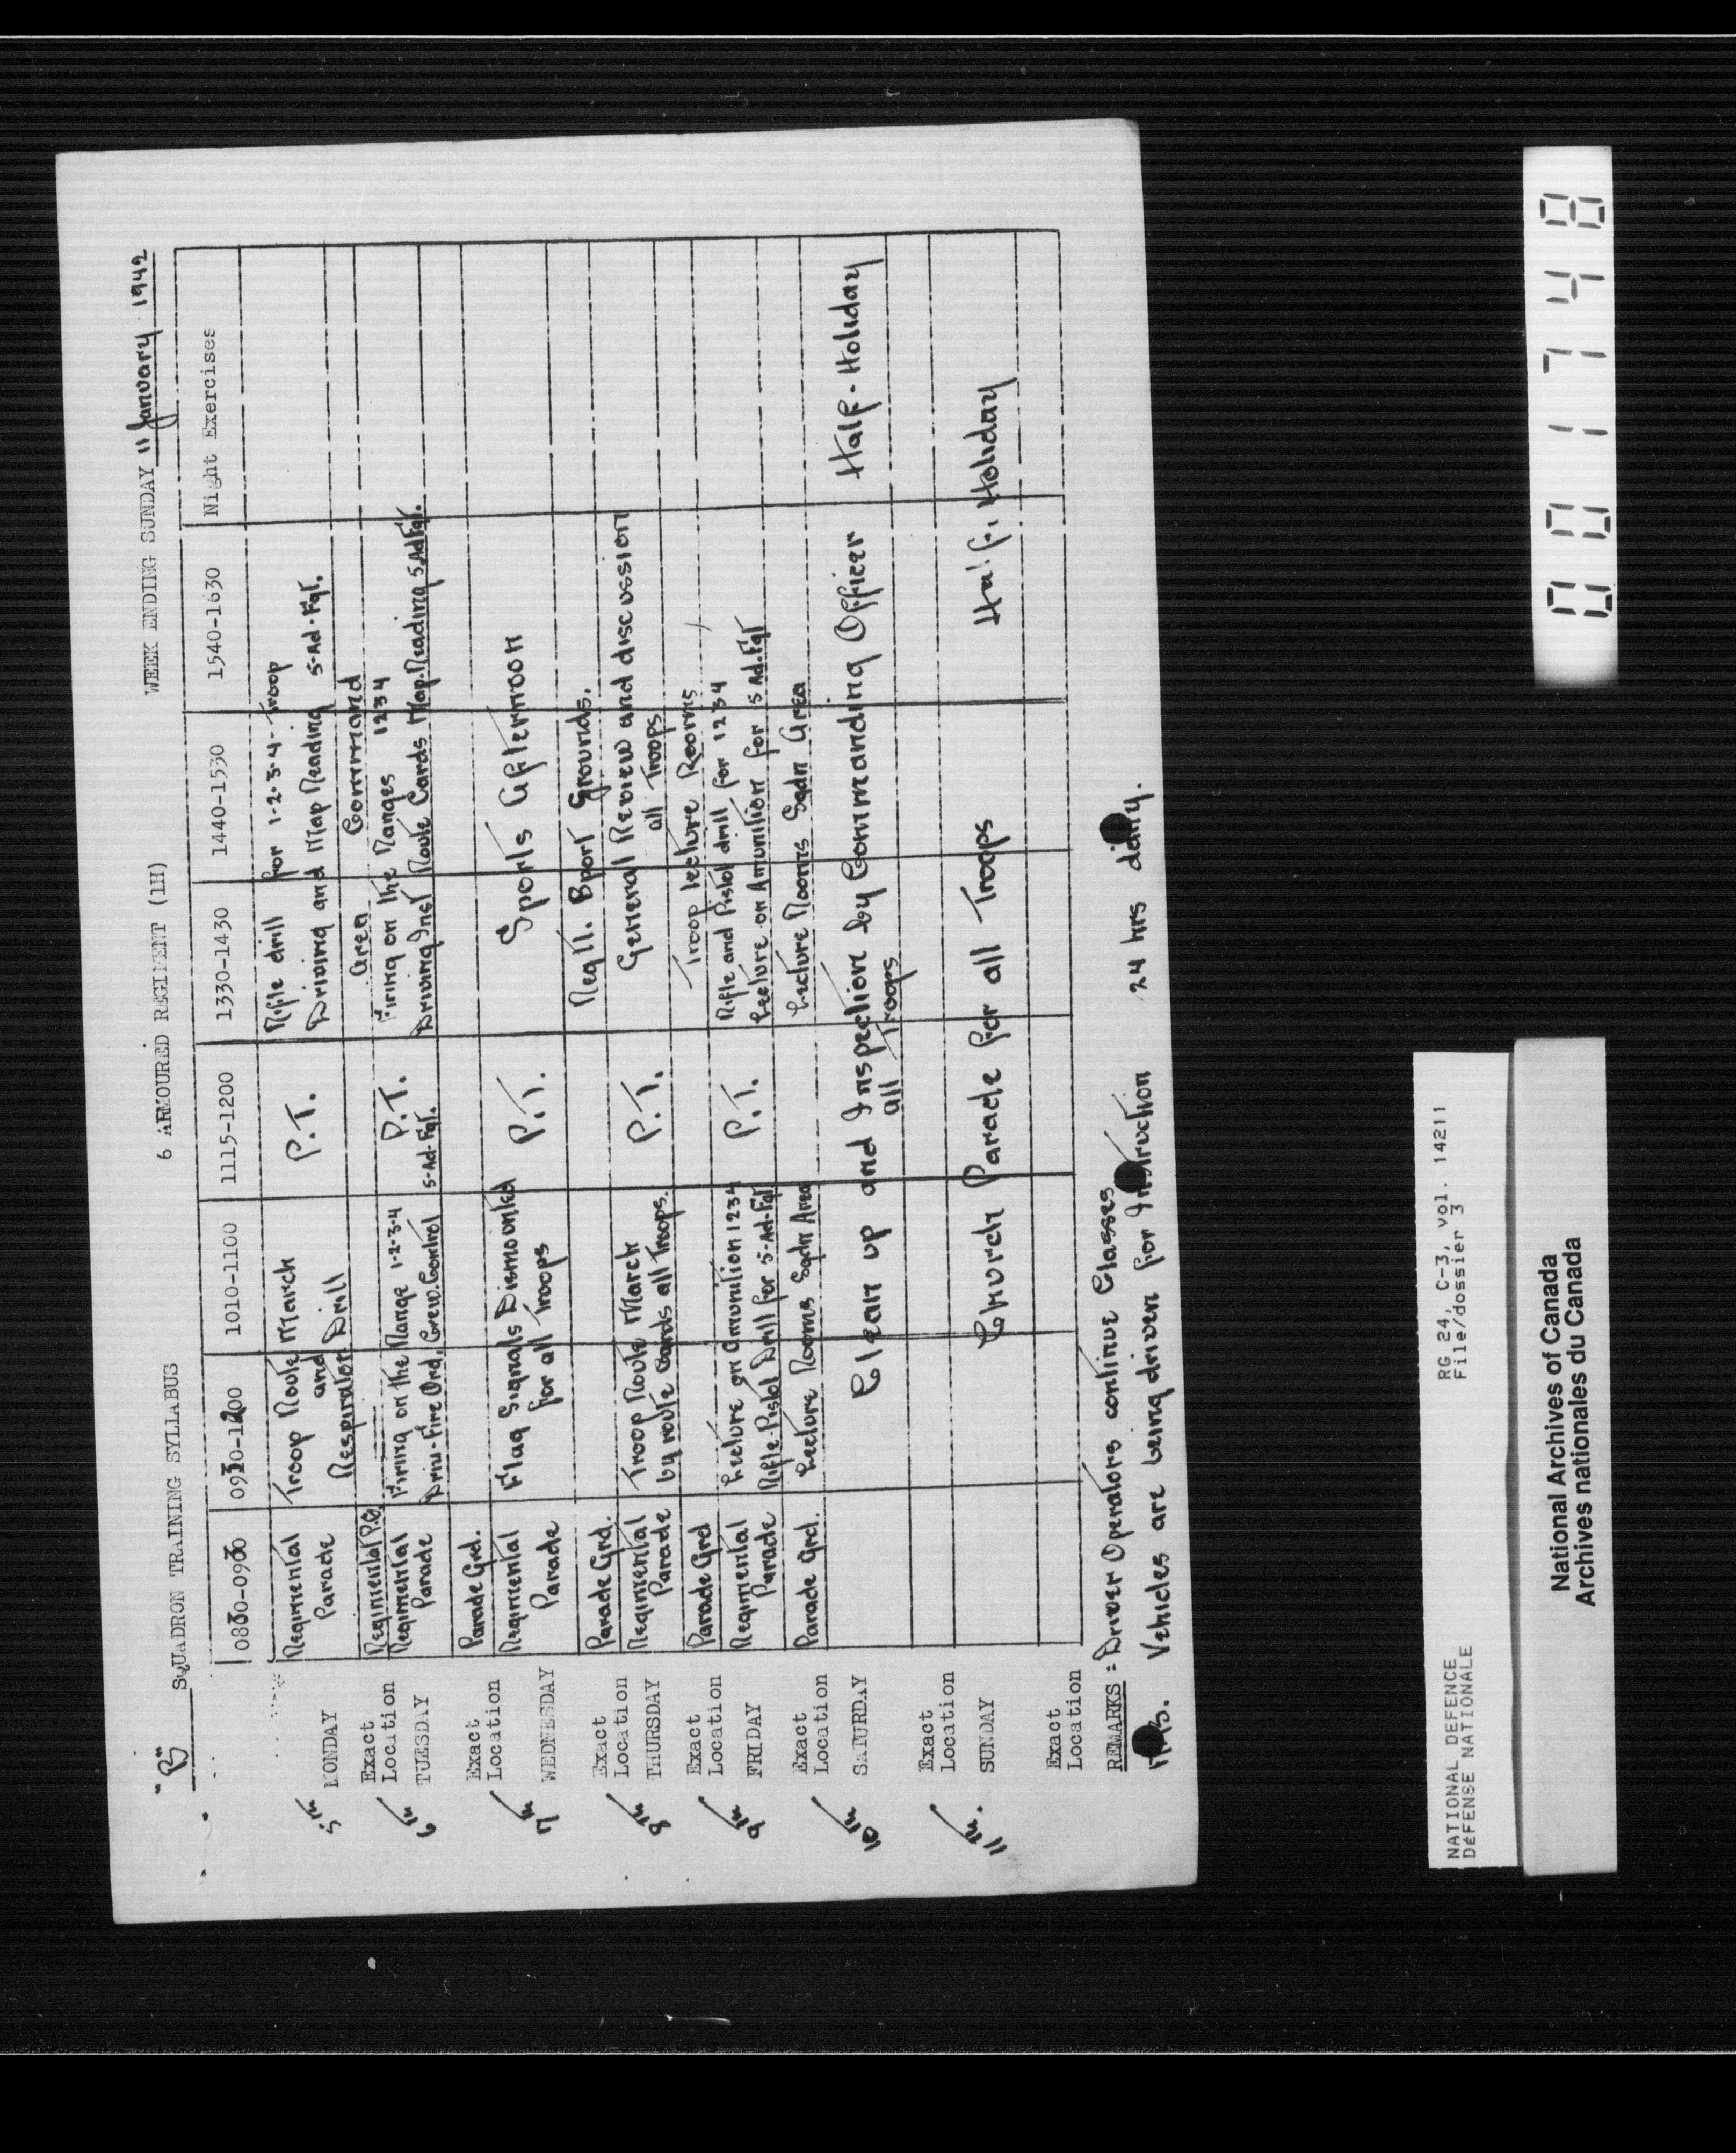 "B" SQUADRON TRAINING SYLLABUS 6 ARMOURED REGIMENT (1H) WEEK ENDING SUNDAY 11 January 1942
0830-0900 0910-1000 1010-1100 1115-1200 1330-1430 1440-1530 1540-1630 Night Exercises
5th MONDAY Regimental Parade Troop Route March and Respirator Drill P.T. Rifle drill for 1-2-3-4-Troop
Driving and Map Reading 5-Ad-Fqt.
Exact Location Regimental P.G. Area Command
6th TUESDAY Regimental Parade Firing on the Range 1-2-3-4 P.T. Firing on the Ranges 1234
Driv-Fire Ord. Crew Control 5-Ad-Fqt. Driving Inst Route Cards Map Reading 5 Ad Fqt.
Exact Location Parade Grd.
7th WEDNESDAY Regimental Parade Flag Signals Dismounted for all Troops P.T. Sports Afternoon
Exact Location Parade Grd. Reg'tl. Sport Grounds.
8th THURSDAY Regimental Parade Troop Route March by route Cards all Troops. P.T. General Review and discussion all Troops
Exact Location Parade Grd Troop lecture Rooms
9th FRIDAY Regimental Parade Lecture on Amunition 1234 P.T. Rifle and Pistol drill for 1234
Rifle-Pistol Drill for 5-Ad-Fqt Lecture on Amunition for 5 Ad.Fqt
Exact Location Parade Grd. Lecture Rooms Sqdn Area Lecture Rooms Sqdn Area
10th SATURDAY Clean up and Inspection by Commanding Officer Half-Holiday
all Troops
Exact Location
11th. SUNDAY Church Parade for all Troops Half Holiday
Exact Location
REMARKS: Driver Operators continue Classes
Vehicles are being driven for Instruction 24 hrs daily.
NATIONAL DEFENCE RG 24, C-3, vol. 14211
DÉFENSE NATIONALE File/dossier 3
National Archives of Canada
Archives nationales du Canada
001748